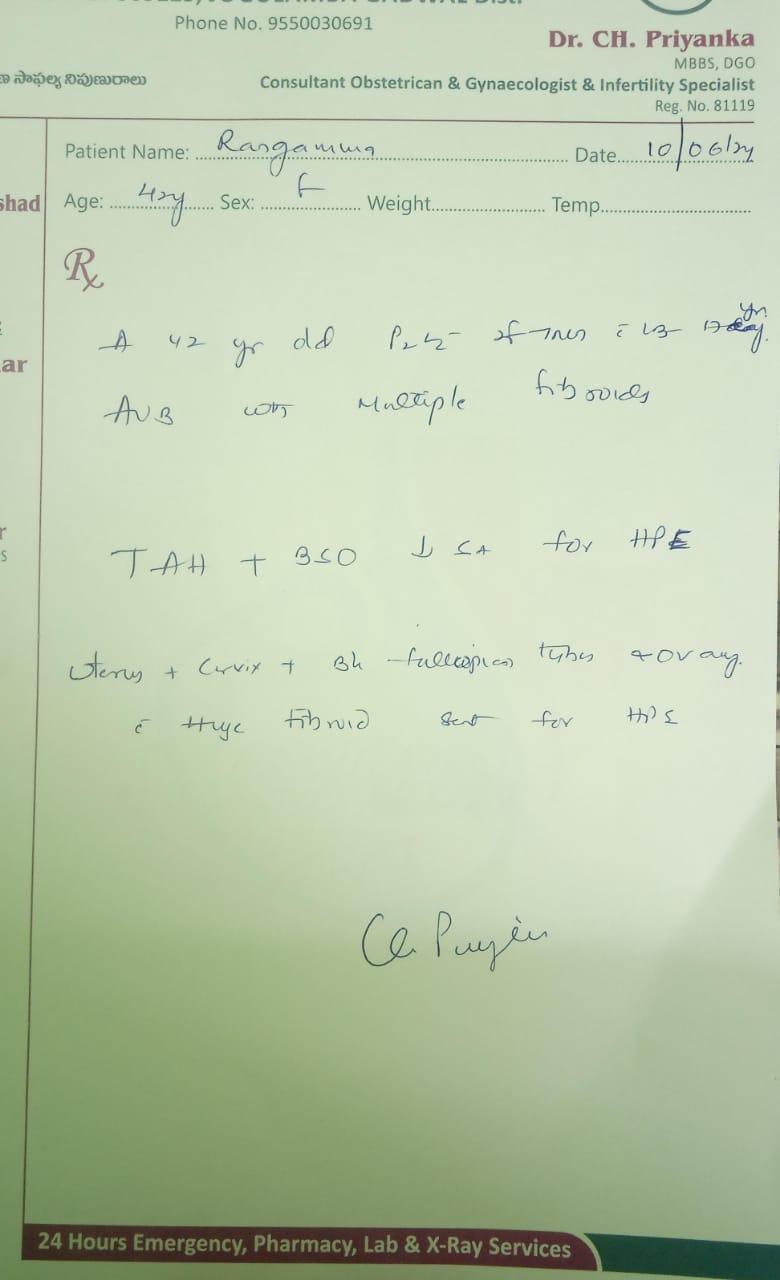 Phone No. 9550030691
Dr. CH. Priyanka
MBBS, DGO
సాఫల్య నిపుణురాలు
Consultant Obstetrician & Gynaecologist & Infertility Specialist
Reg. No. 81119
Patient Name: Rangamma Date 10/06/24
shad Age: 42y Sex: F Weight Temp
Rx
A 42 yr old P2L2 c LB yr.
ar
AUB with Multiple fibroids
TAH + BSO ↓ SA for HPE
Uterus + Cervix + B/L fallopian tubes + ovary.
c Huge fibroid sent for HPE
24 Hours Emergency, Pharmacy, Lab & X-Ray Services